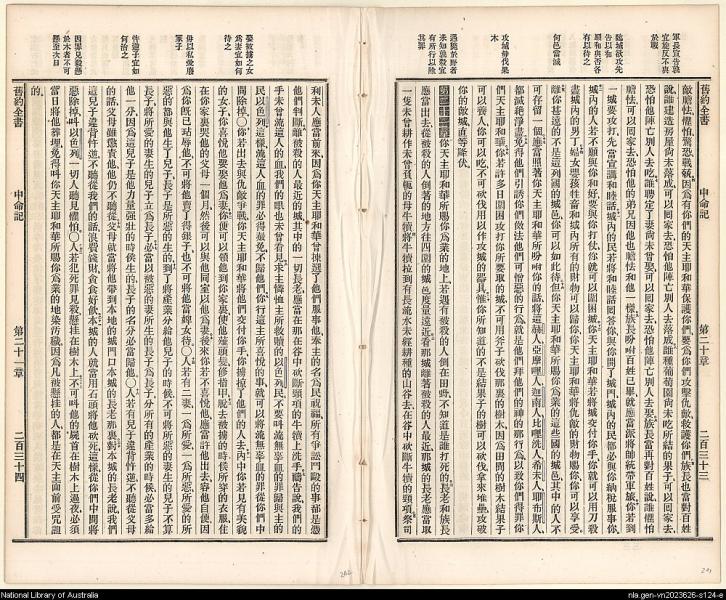 軍長宣告戰
宜施反不典
於戰
臨城欲攻先
告以和
願和與否各
有以待之
何邑當滅
攻城毋伐果
木
遇斃於野者
未知孰殺宜
有所行以除
其罪
舊約全書
申命記
第二十章
二百三十三
敵膽怯懼怕驚恐戰兢因爲有你們的天主耶和華保護你們要爲你們攻擊仇敵救護你們族長也當對百姓
說誰建造房屋尚未落成可以回家去恐怕他陣亡別人去落成誰種葡萄園尚未吃所結的果子可以回家去
恐怕他陣亡別人去吃誰聘定了妻尚未曾娶可以回家去恐怕他陣亡別人去娶族長當再對百姓說誰懼怕
膽怯可以回家去恐怕他的弟兄因他也膽怯和他一樣族長吩咐百姓已畢就應當派將師統帶軍旅你若到
一城要攻打先當宣講和睦話城內的民若將和睦話回答你與你開了城門城內的民都必與你納稅服事你
城內的人若不願與你和好要與你打仗你就可以圍困城天主耶和華若將城交付你手你就可以用刀殺
盡城內的男丁婦女嬰孩牲畜和城內所有的財物可以歸你天主耶和華將仇敵的財物賜你你可以享受
離你甚遠的不是這列國的城邑你可以如此待但你天主耶和華所賜你爲業的這些國的城邑其中的人不
可存留一個應當照著你天主耶和華所吩咐你的話將這赫人亞摩哩人迦南人比哩洗人希未人耶布斯人
都滅絕淨盡免得他們引誘你們做法他們可憎惡的行爲就是他們拜他們的神的那行爲以致你們得罪你
們天主耶和華你若許多日圍困攻打你所要取的城不可用斧子砍伐那裏的樹木因爲田間的樹木結果子
可以養人你可以吃不可砍伐用以作攻城的器具惟你所知道的不是結果子的樹可以砍伐拿來堆壘攻破
你的敵城直等降伏
第二十一章你天主耶和華所賜你爲業的地上若遇有被殺的人倒在田野不知道是誰打死的長老和族長
應當出去從被殺的人倒著的地方往四圍的城邑度量遠近看那城離著被殺的人最近那城的長老應當取
一隻未曾耕作未曾負軛的母牛犢將牛犢拉到有長流水未經耕種的山谷去在谷中砍斷牛犢的頸項祭司
娶被擄之女
爲妻宜如何
待之
毋以私愛廢
冢子
忤逆子宜如
何治之
因罪見殺懸
於木者不可
懸歷次日
舊約全書
申命記
第二十一章
二百三十四
利未人應當前來因爲你天主耶和華曾揀選了他們服事他奉主的名爲民祝福所有爭訟鬥毆的事都是憑
他們判斷離被殺的人最近的城其中的一切長老應當在那在谷中砍斷頸項的牛犢上洗手禱告說我們的
手未曾流這人的血我們的眼也未曾看見求主憐恤主所救贖的以色列民不要叫流無辜血的罪歸與主的
民以色列這樣流這人血的罪必得赦免不歸他們你行這主所喜悅的事就可以將流無辜血的罪從你們中
間除掉○你若出去與仇敵爭戰你天主耶和華將他們交付你手你擄掠了他們的人去內中你若見有美貌
的女子你喜悅他要娶他爲妻你便可以領他到你家裏使他薙頭髮修指甲脫去被擄的時候所穿的衣服住
在你家裏哀哭他的父母一個月然後可以與他同室以他爲妻後來你若不喜悅他應當許他出去容他自便因
爲你旣已玷辱他不可將他賣了得銀子也不可將他當婢女待○人若有二妻一爲所愛一爲所惡所愛的所
惡的都與他生了兒子長子是所惡的生的到了將產業分給他兒子的時候不可將所惡的妻生的兒子不算
長子將所愛的妻生的兒子立爲長子必當以嫡惡的妻所生的長子爲長子分所有的產業的時候必當多給
他一分因爲這兒子是他力量強壯的時候生的長子的名分必當歸他○人若有兒子違背忤逆不聽從父母
的話父母雖懲責他他仍不聽從父母就當將他帶到本地的城門口本城的長老那裏對本城的長老說我們
這兒子違背忤逆不聽從我們的話浪費錢財貪食好飲本城的人就當用石頭將他砍死這樣從你們中間將
惡除掉叫以色列一切人聽見懼怕○人若犯死罪見殺懸挂在樹木上不可叫他的屍首在樹木上過夜必須
當日將他葬埋免得叫你天主耶和華所賜你爲業的地染汙穢因爲凡被懸挂的人都是在天主面前受咒詛
的
National Library of Australia
nla.gen-vn2023626-s124-e